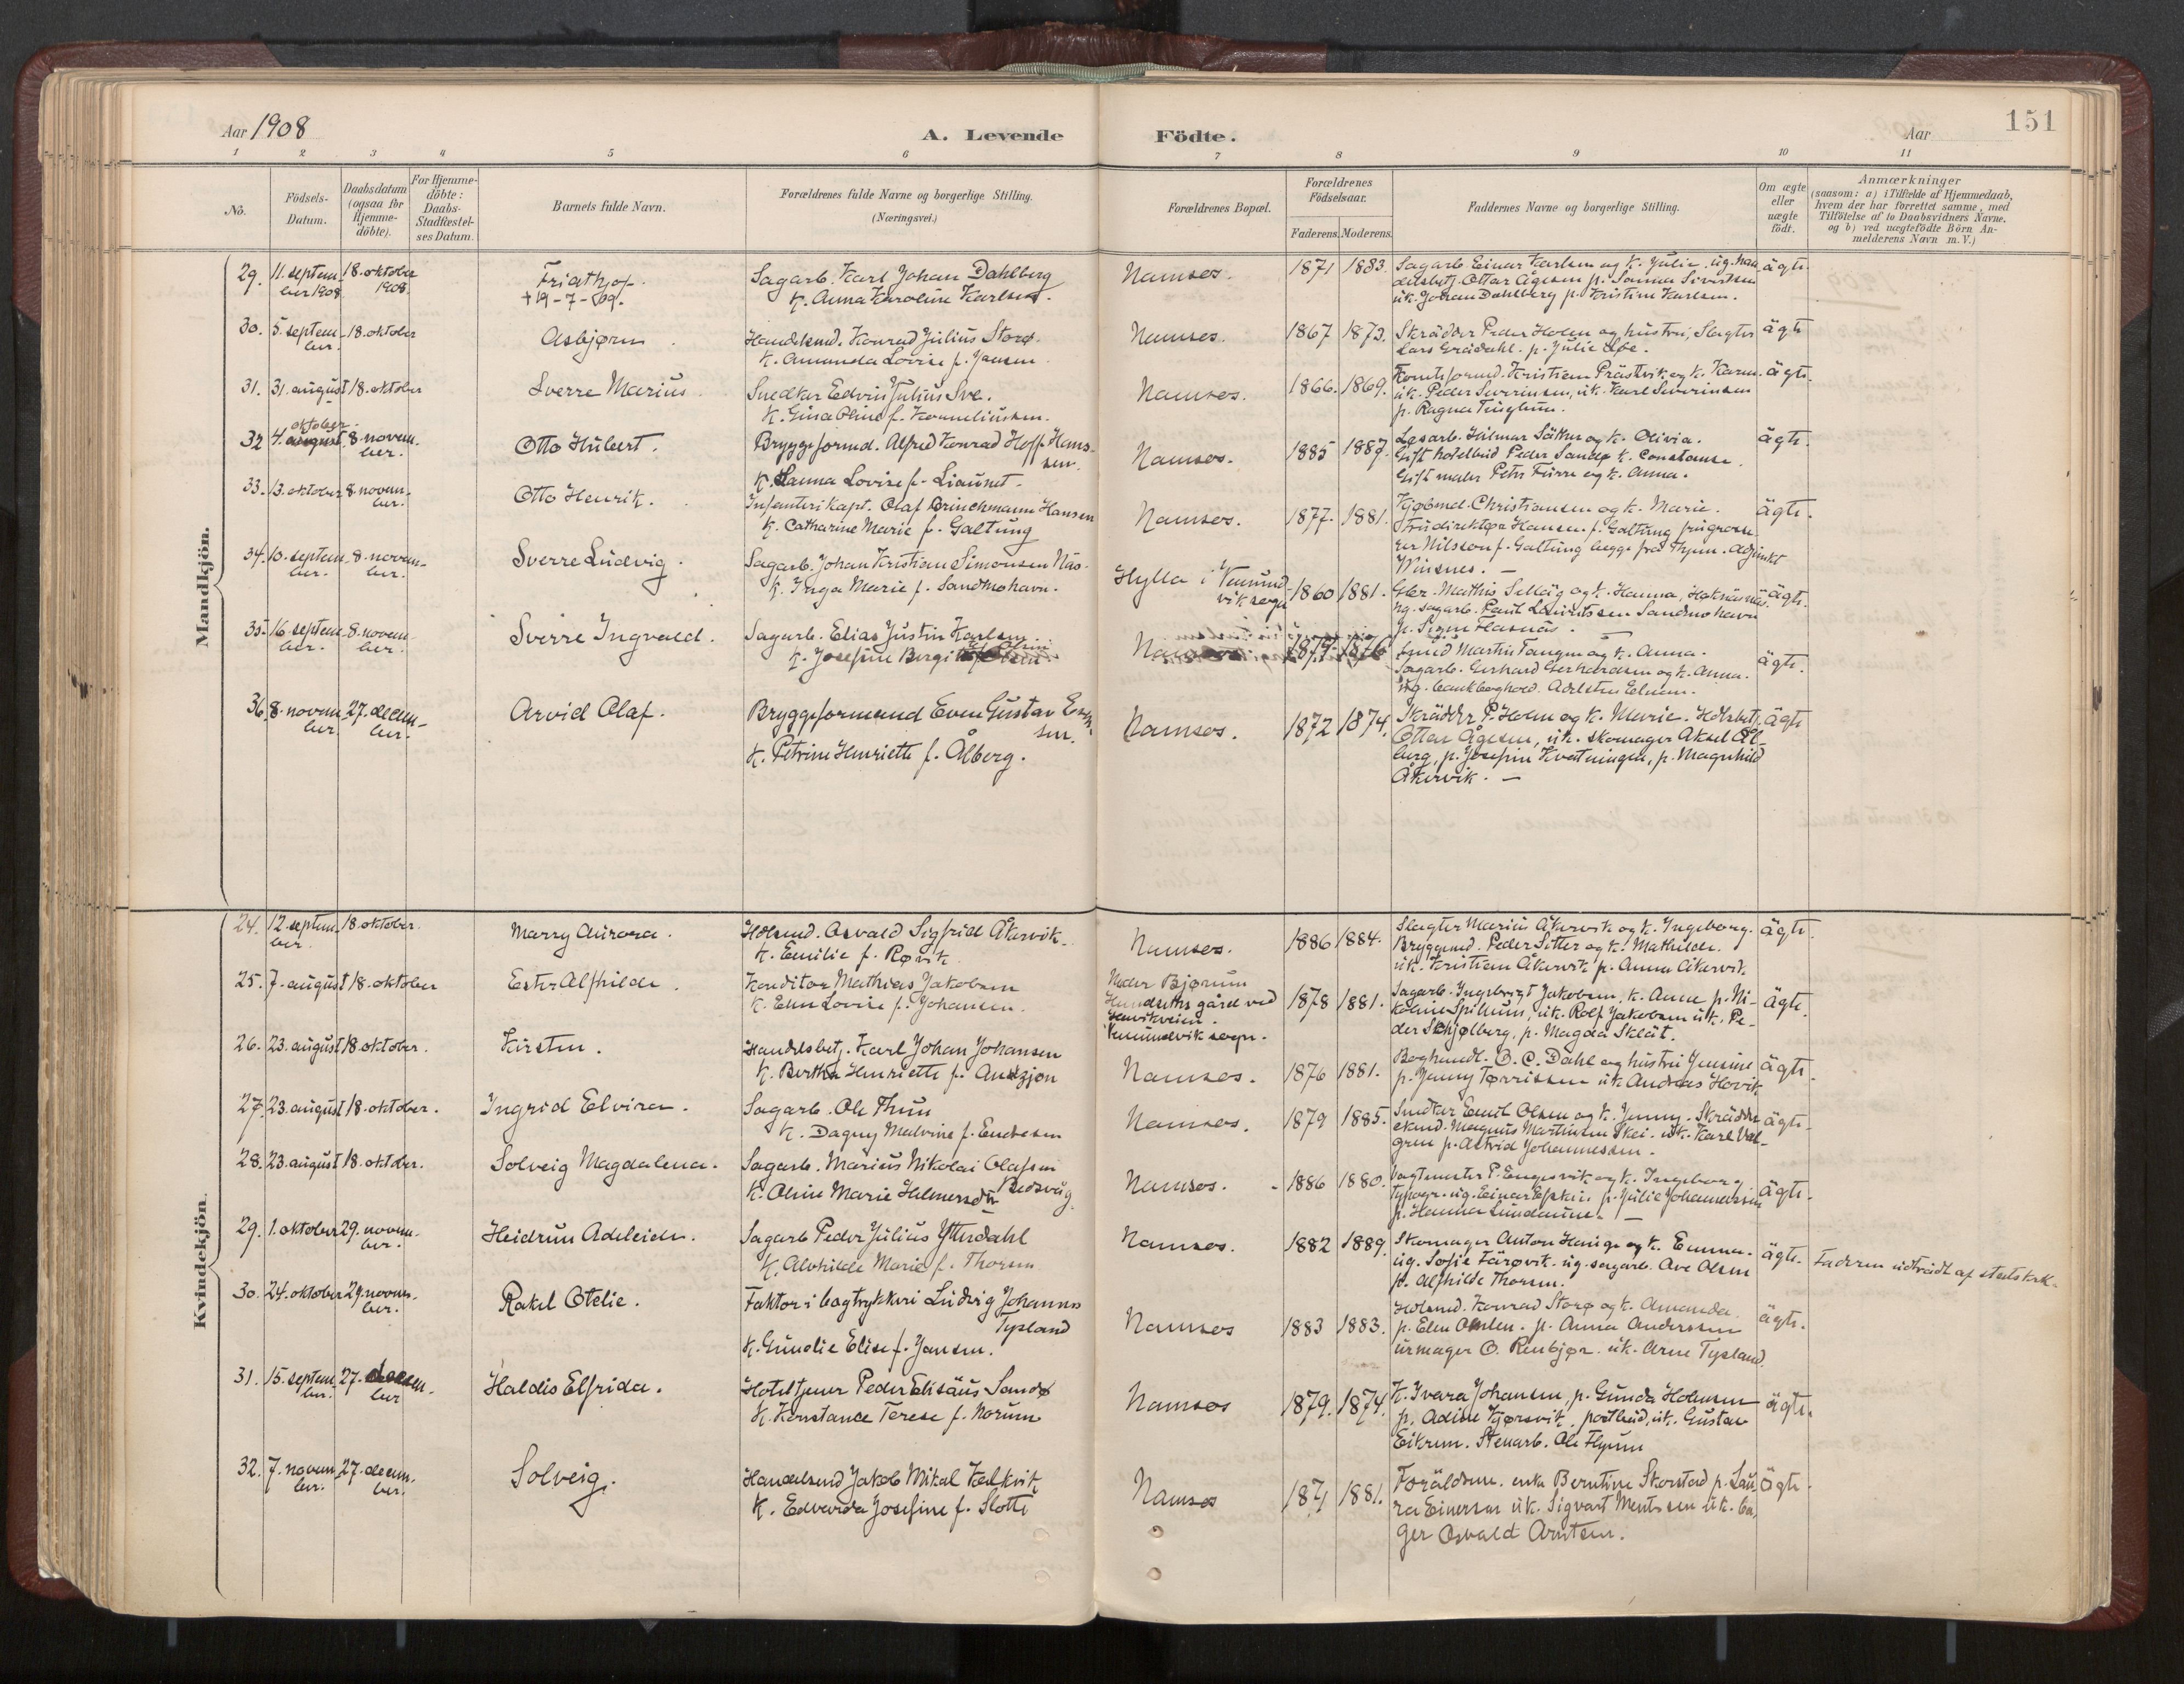 Aar 1908
A. Levende
Födte.
Aar
151
1 2 3 4 5 6 7 8 9 10 11
No.
Födsels-
Datum.
Daabsdatum
(ogsaa for
Hjemme-
döbte).
For Hjemme-
döbte:
Daabs-
Stadfæstel-
ses Datum.
Barnets fulde Navn.
Forældrenes fulde Navne og borgerlige Stilling.
(Næringsvei.)
Forældrenes Bopæl.
Forældrenes
Födselsaar.
Faderens. Moderens.
Faddernes Navne og borgerlige Stilling.
Om ægte
eller
uægte
födt.
Anmærkninger
(saasom: a) i Tilfælde af Hjemmedaab,
hvem der har forrettet samme, med
Tilföielse af to Daabsvidners Navne,
og b) ved uægtefödte Börn An-
melderens Navn m. V.)
Mandkjön.
29. 11. septem- 18. oktober
ber 1908. 1908.
Friathjof.
+ 19-7-09.
Sagarb. Karl Johan Dahlberg
K. Anna Karoline Karlsen.
Namsos. 1871 1883.
Sagarb. Einar Karlsen og K. Julie. ug. han-
delsbetj. Ottar Ågesen p. Sanna Sivertsen
uk. Johan Dahlberg p. Kristine Karlsen.
ägte.
30. 5. septem- 18. oktober
ber.
Asbjørn.
Handelsmd. Konrad Julius Storø.
K. Amanda Lovise f. Jansen.
Namsos. 1867 1872.
Skrädder Peder Holm og hustru, Slagter
Lars Grådahl. p. Julie Løe.
ägte
31. 31. august 18. oktober
Sverre Marius.
Snedker Edvin Julius Sve.
K. Gina Oline f. Korneliussen.
Namsos. 1866. 1869.
Tomteformd. Kristian Prästvik og K. Karen.
uk. Peder Severinsen, uk. Karl Severinsen
p. Ragna
ägte.
32 4. oktober 8. novem-
ber.
Otto Hubert.
Bryggeformd. Alfred Konrad Hoff Hans-
sen.
K. Sanna Lovise f. Liaunet.
Namsos. 1885 1887.
Løsarb. Hilmar Säther og K. Olivia.
Gift hotelbud Peder Sandø K. Constanse.
Gift maler Petr Furre og K. Anna.
ägte.
33. 13. oktober 8. novem-
ber.
Otto Henrik.
Infanteri Kapt. Olaf Brinchmann Hansen
K. Catharine Marie f. Galtung
Namsos. 1877. 1881.
Kjøbmd. Christiansen og K. Marie.
Frudirektør Hansen f. Galtung frugrosse-
rer Nilsson f. Galtung begge fra Thjem. Adjunkt
Winsnes. —
ägte.
34. 10. septem- 8. novem-
ber. ber.
Sverre Ludvig.
Sagarb. Johan Kristian Simonsen Näs.
K. Inga Marie f. Sandmohavn.
Hylla i Vemund-
vik sogn 1860 1881.
Gbr. Mathis Selläg og K. Hanna, Haknäsnäs.
ug. sagarb. Paul Lauritssen Sandmohavn
p. Signe Flasnäs. —
ägte.
35. 16. septem- 8. novem-
ber. ber.
Sverre Ingvald.
Sagarb. Elias Justin Karlsen.
K. Josefine Bergitte f. Olsen
Namsos 1877. 1876
Smed Martin Fangen og K. Anna.
Sagarb. Gerhard Gerhardsen og K. Anna.
ug. bankboghold. Adelsten Eidnem.
ägte.
36. 8. novem- 27. decem-
ber. ber.
Arvid Olaf.
Bryggeformand Even Gustav Even-
sen.
K. Petrine Henriette f. Ålberg.
Namsos. 1872 1874.
Skrädder P. Holm og K. Marie. Hdlsbetj.
Ottar Ågesen, uk. skomager Aksel Ål-
berg, p. Josefine Kvatningen, p. Magnhild
Åkervik. —
ägte
Kvindekjön.
24. 12. septem- 18. oktober.
ber.
Marry Aurora.
Hdlsmd. Osvald Sigfrid Åkervik.
K. Emilie f. Røvik.
Namsos. 1886 1884.
Slagter Marius Åkervik og K. Ingeborg.
Bryggemd. Peder Sitter og K. Mathilde.
uk. Kristian Åkervik p. Anna Åkervik
ägte.
25. 7. august 18. oktober
Ester Alfhilde.
Konditor Mathias Jakobsen
K. Elen Lovise f. Johansen.
Neder Bjørum
Hundseths gård ved
Henvikveien.
Vemundvik sogn. 1878 1881.
Sagarb. Ingebrigt Jakobsen, K. Anne p. Ni-
koline Spillum, uk. Rolf Jakobsen uk. Pe-
der Schjølberg, p. Magda Sklät.
ägte.
26. 23. august 18. oktober.
Kirsten.
Handelsbetj. Karl Johan Johansen
K. Bertha Henriette f. Auszjøn
Namsos. 1876 1881.
Boghandl. O. C. Dahl og hustru Jensine
p. Jenny Tørrissen uk. Andreas Hovik
ägte.
27. 23. august 18. oktober.
Ingrid Elvira.
Sagarb. Ole Thun
K. Dagny Malvine f. Endresen
Namsos. 1879 1885.
Snedker Emil Olsen og K. Jenny. Skrädder
Magnus Martinsen Skei. uk. Karl Val-
gren p. Astrid Johannessen.
ägte.
28. 23. august 18. oktober.
Solveig Magdalena.
Sagarb. Marius Nikolai Olafsen
Redsvåg.
K. Oline Marie Helmersdtr
Namsos. 1886 1880.
Vagtmester P. Engesvik og K. Ingeborg
typogr. ug. Einar p. Julie Johannessen
p. Hanna Lundamo. —
ägte.
29. 1. oktober 29. novem-
ber.
Heidrun Adeleide.
Sagarb Peder Julius Ytterdahl
K. Alvhilde Marie f. Thorsen
Namsos. 1882 1889.
Skomager Anton Hauge og K. Emma.
ug. Sofie Färøvik. ug. sagarb. Ave Olsen
p. Alfhilde Thorsen.
ägte. Faderen udtraadt af statskirk.
30. 24. oktober 29. novem-
ber.
Rakel Otelie.
Faktor i bogtrykkeri Ludvig Johannes
Tysland
K. Gunolie Elise f. Jansen.
Namsos 1883 1883.
Hdlsmd. Konrad Storø og K. Amanda.
p. Elen Omlen. p. Anna Anderssen
urmager O. Renbjør. uk. Arne Tysland.
ägte.
31. 15. septem- 27. decem-
ber. ber
Haldis Elfrida.
Hoteltjener Peder Elisäus Sandø
K. Konstance Terese f. Norum
Namsos 1879. 1874.
K. Ivara Johansen, p. Gunda Holmsen
p. Adine Kjørsvik, postbud, uk. Gustav
Eikrem. Stenarb. Ole Flyum
ägte.
32. 7. novem- 27. decem-
ber. ber.
Solveig.
Handelsmd Jakob Mikal Kalkvik
K. Edvarda Josefine f. Slotte
Namsos 1871 1881.
Foräldrene. enke Berntine Skorstad p. Lau-
ra Einersen uk. Sigvart Mentsen uk. ba-
ger Osvald Arntsen.
ägte.